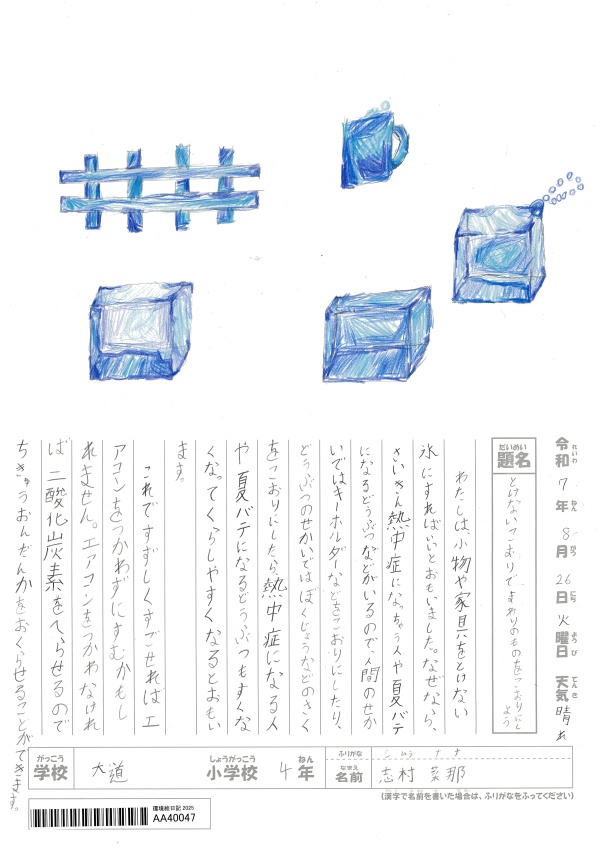 令和7年8月26日火曜日 天気 晴れ
れいわ ねん がつ にち ようび てんき
だいめい
題名
とけないこおりでまわりのものをこおりにしよう
わたしは、小物や家具をとけない
氷にすればいいとおもいました。なぜなら、
さいきん熱中症になっちゃう人や夏バテ
になるどうぶつなどがいるので、人間のせか
いではキーホルダーなどをこおりにしたり、
どうぶつのせかいではぼくじょうなどのさく
をこおりにしたら、熱中症になる人
や夏バテになるどうぶつもすくな
くなってくらしやすくなるとおもい
ます。
これですずしくすごせればエ
アコンをつかわずにすむかもし
れません。エアコンをつかわなけれ
ば二酸化炭素をへらせるので
ちきゅうおんだんかをおくらせることができます。
がっこう しょうがっこう ねん ふりがな シムラ ナナ
学校 大道 小学校 4年 なまえ 名前 志村菜那
(漢字で名前を書いた場合は、ふりがなをふってください)
環境絵日記 2025
AA40047